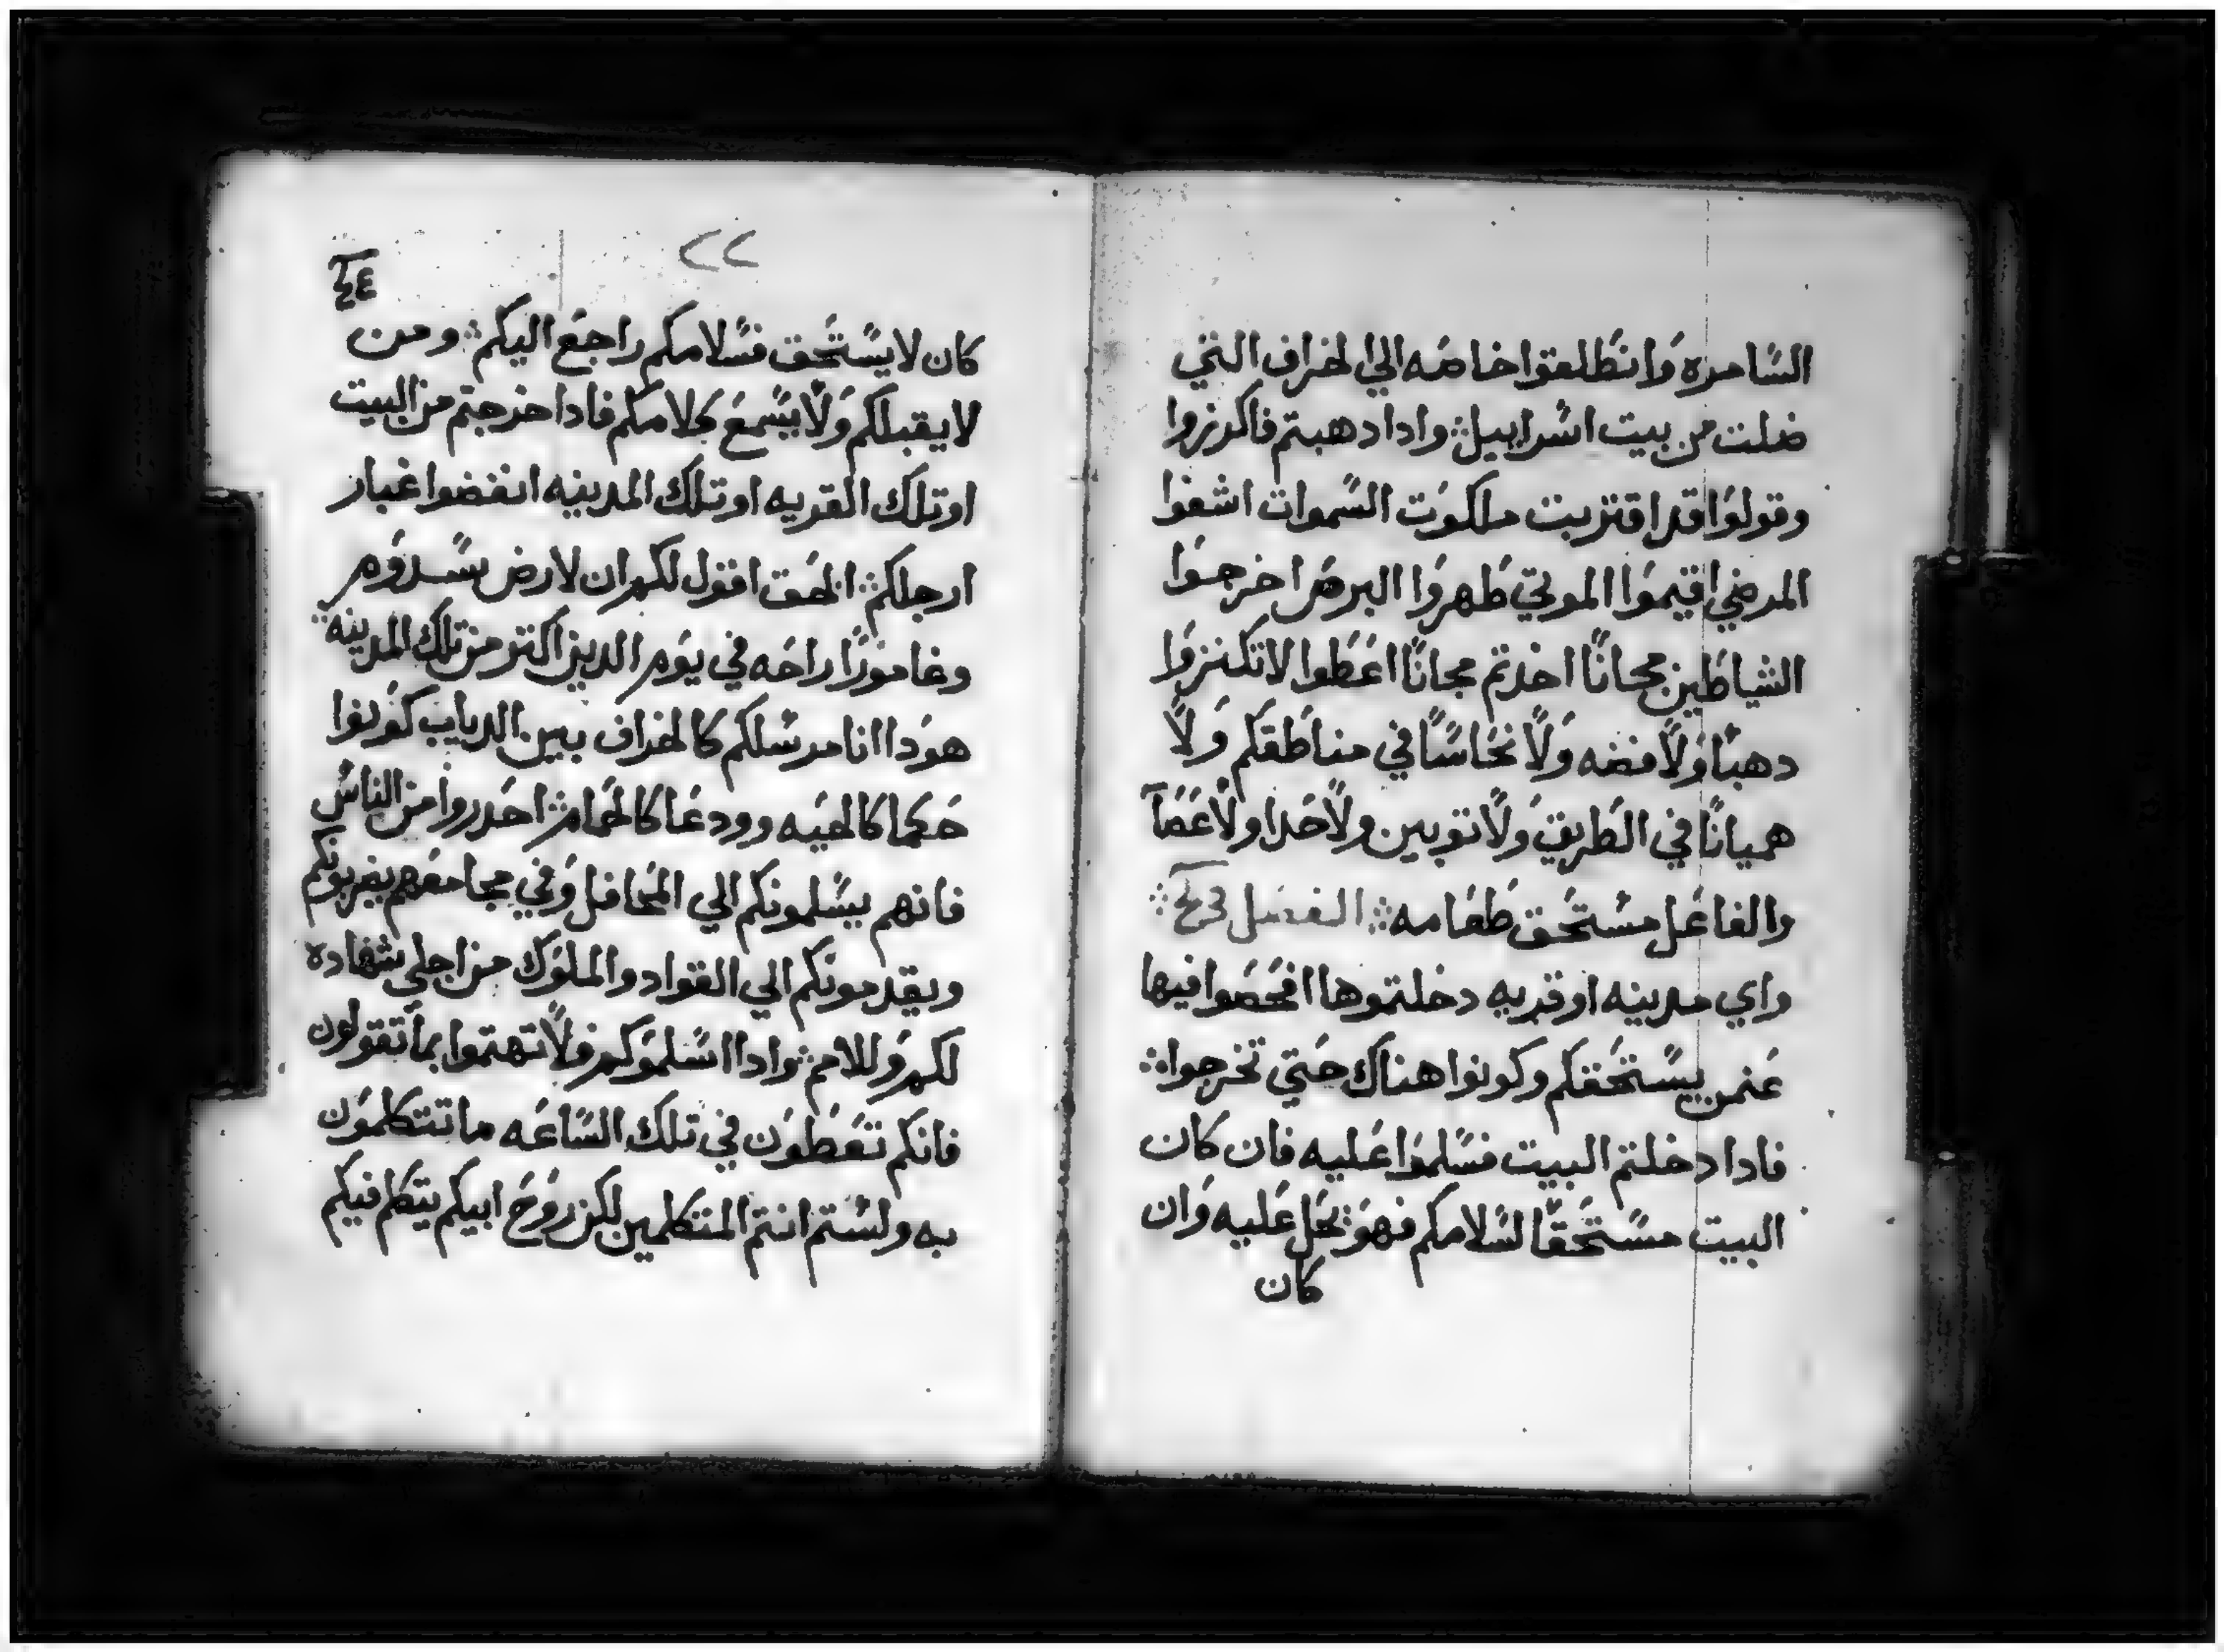 السامره وانطلقوا خاصه الي الخراف التي
ضلت من بيت اسرابيل ؞ وادا دهبتم فاكرزوا
وقولوا قد اقتربت ملكوت السموات اشفوا
المرضي اقيموا الموتي طهروا البرص اخرجوا
الشياطين مجانا اخدتم مجانا اعطوا لا تكنزوا
دهبا ولا فضه ولا نحاسا في مناطقكم ولا
هميانا في الطريق ولا توبين ولا حدا ولا عصا
والفاعل مستحق طعامه ؞ الفصل
واي مدينه او قريه دخلتموها افحصوا فيها
عنمن يستحقكم وكونوا هناك حتي تخرجوا ؞
فادا دخلتم البيت فسلموا عليه فان كان
البيت مستحقا لسلامكم فهو يحل عليه وان
كان
٢٢
كان لا يستحق فسلامكم راجع اليكم ؞ ومن
لا يقبلكم ولا يسمع كلامكم فادا خرجتم من البيت
او تلك القريه او تلك المدينه انفضوا غبار
ارجلكم ؞ الحق اقول لكم ان لارض سدوم
وغامورا راحه في يوم الدين اكتر من تلك المدينه ؞
هودا انا مرسلكم كالخراف بين الدياب كونوا
حكما كالحيه وودعا كالحمام ؞ احدروا من الناس
فانهم يسلمونكم الي المحافل وفي مجامعهم يضربونكم
ويقدمونكم الي القواد والملوك من اجلي شهاده
لكم وللامم ؞ وادا اسلموكم فلا تهتموا بما تقولون
فانكم تعطون في تلك الساعه ما تتكلمون
به ولستم انتم المتكلمين لكن روح ابيكم يتكلم فيكم